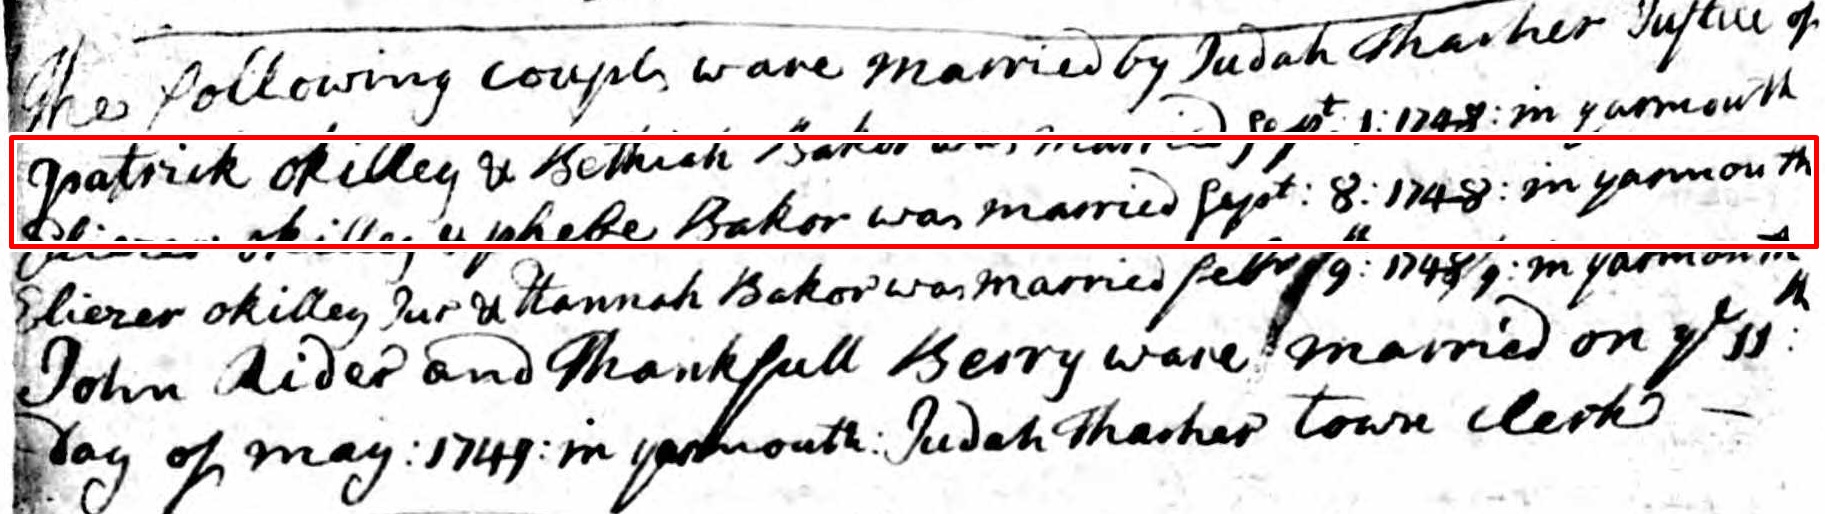 The following coupls ware married by Judah Thacher Justice of
patrick okilley & Bethiah Baker was married Sept: 1: 1748: in yarmouth
Eliezer okilley & phebe Bakor was married Sept: 8: 1748: in yarmouth
Eliezer okilley Jur & Hannah Bakor was married febr 9: 1748/9: in yarmouth
John Rider and Thankfull Berry ware married on ye 11th:
Day of may: 1749: in yarmouth: Judah Thacher town clerk